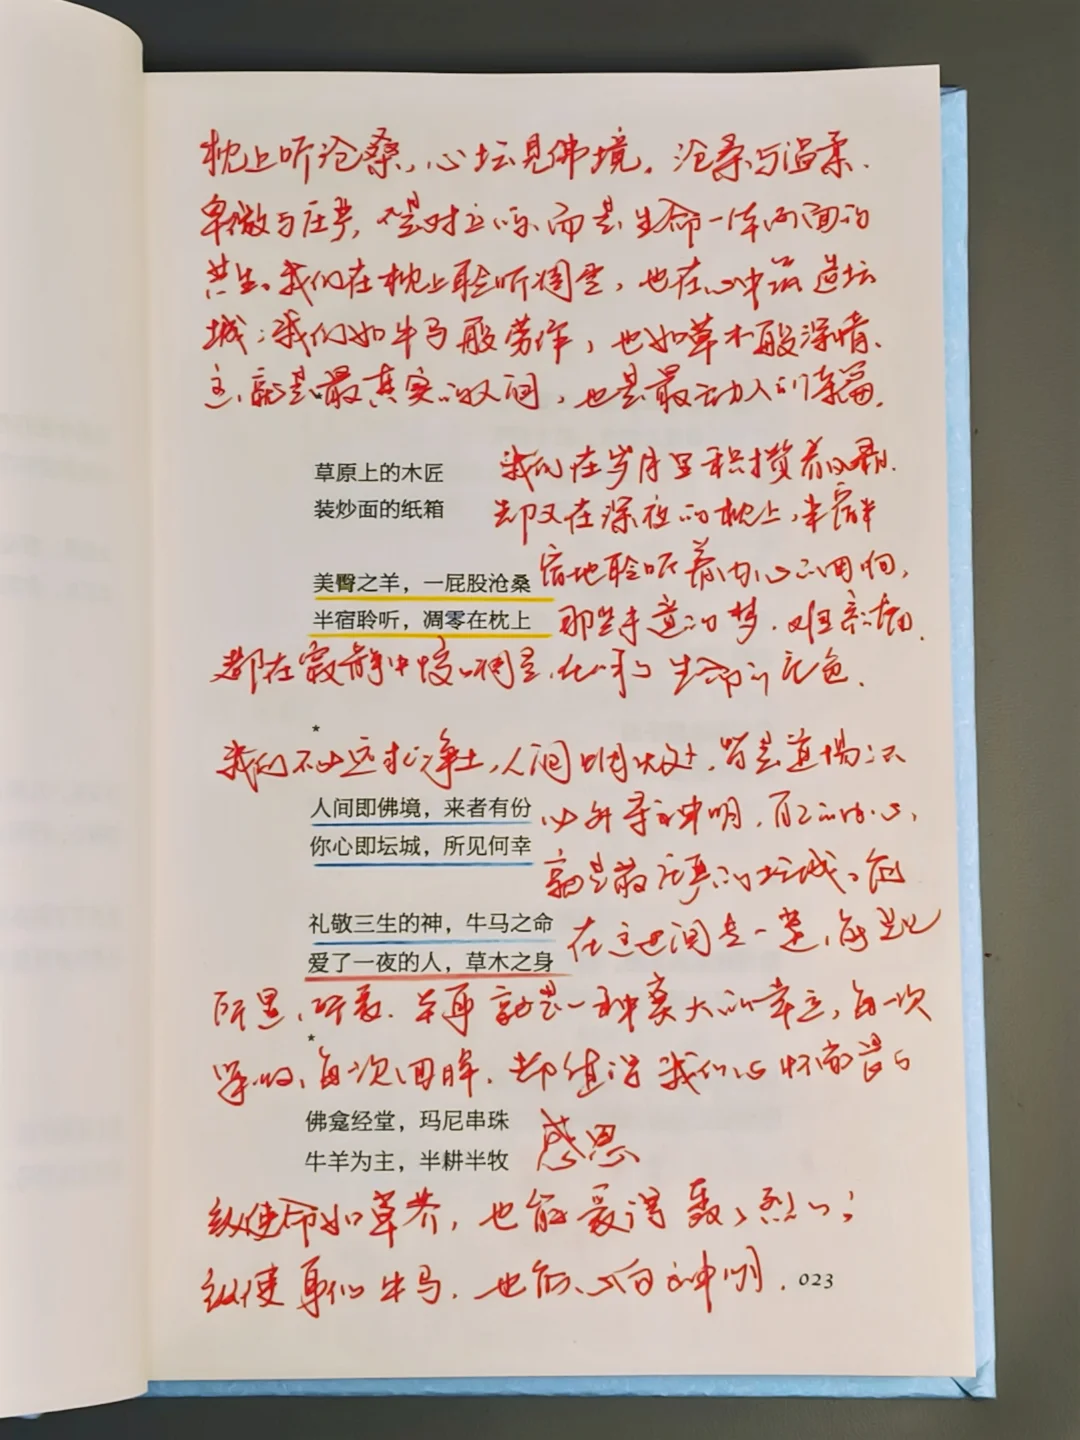 枕上听沧桑,心坛见佛境。沧桑与温柔、
卑微与庄严,不是对立的,而是生命一体两面的
共生。我们在枕上聆听凋零,也在心中筑造坛
城;我们如牛马般劳作,也如草木般深情。
这,就是最真实的人间,也是最动人的诗篇。
*
草原上的木匠
装炒面的纸箱
我们在岁月里积攒着风霜,
却又在深夜的枕上,半宿半
美臀之羊,一屁股沧桑
宿地聆听着内心的回响,
半宿聆听,凋零在枕上
那些未竟的梦、难言的
都在寂静中慢慢凋零,化作了生命的底色。
*
我们不必远求净土,人间烟火处,皆是道场;不
人间即佛境,来者有份
必外寻神明,自己的内心,
你心即坛城,所见何幸
就是最庄严的坛城。能
礼敬三生的神,牛马之命
在这世间走一遭,
爱了一夜的人,草木之身
所遇、所爱,本身就是一种莫大的幸运,每一次
*
每次回眸,都值得我们心怀敬畏与
佛龛经堂,玛尼串珠
感恩
牛羊为主,半耕半牧
纵使命如草芥,也能爱得轰轰烈烈;
纵使身似牛马,也能心向神明。
023